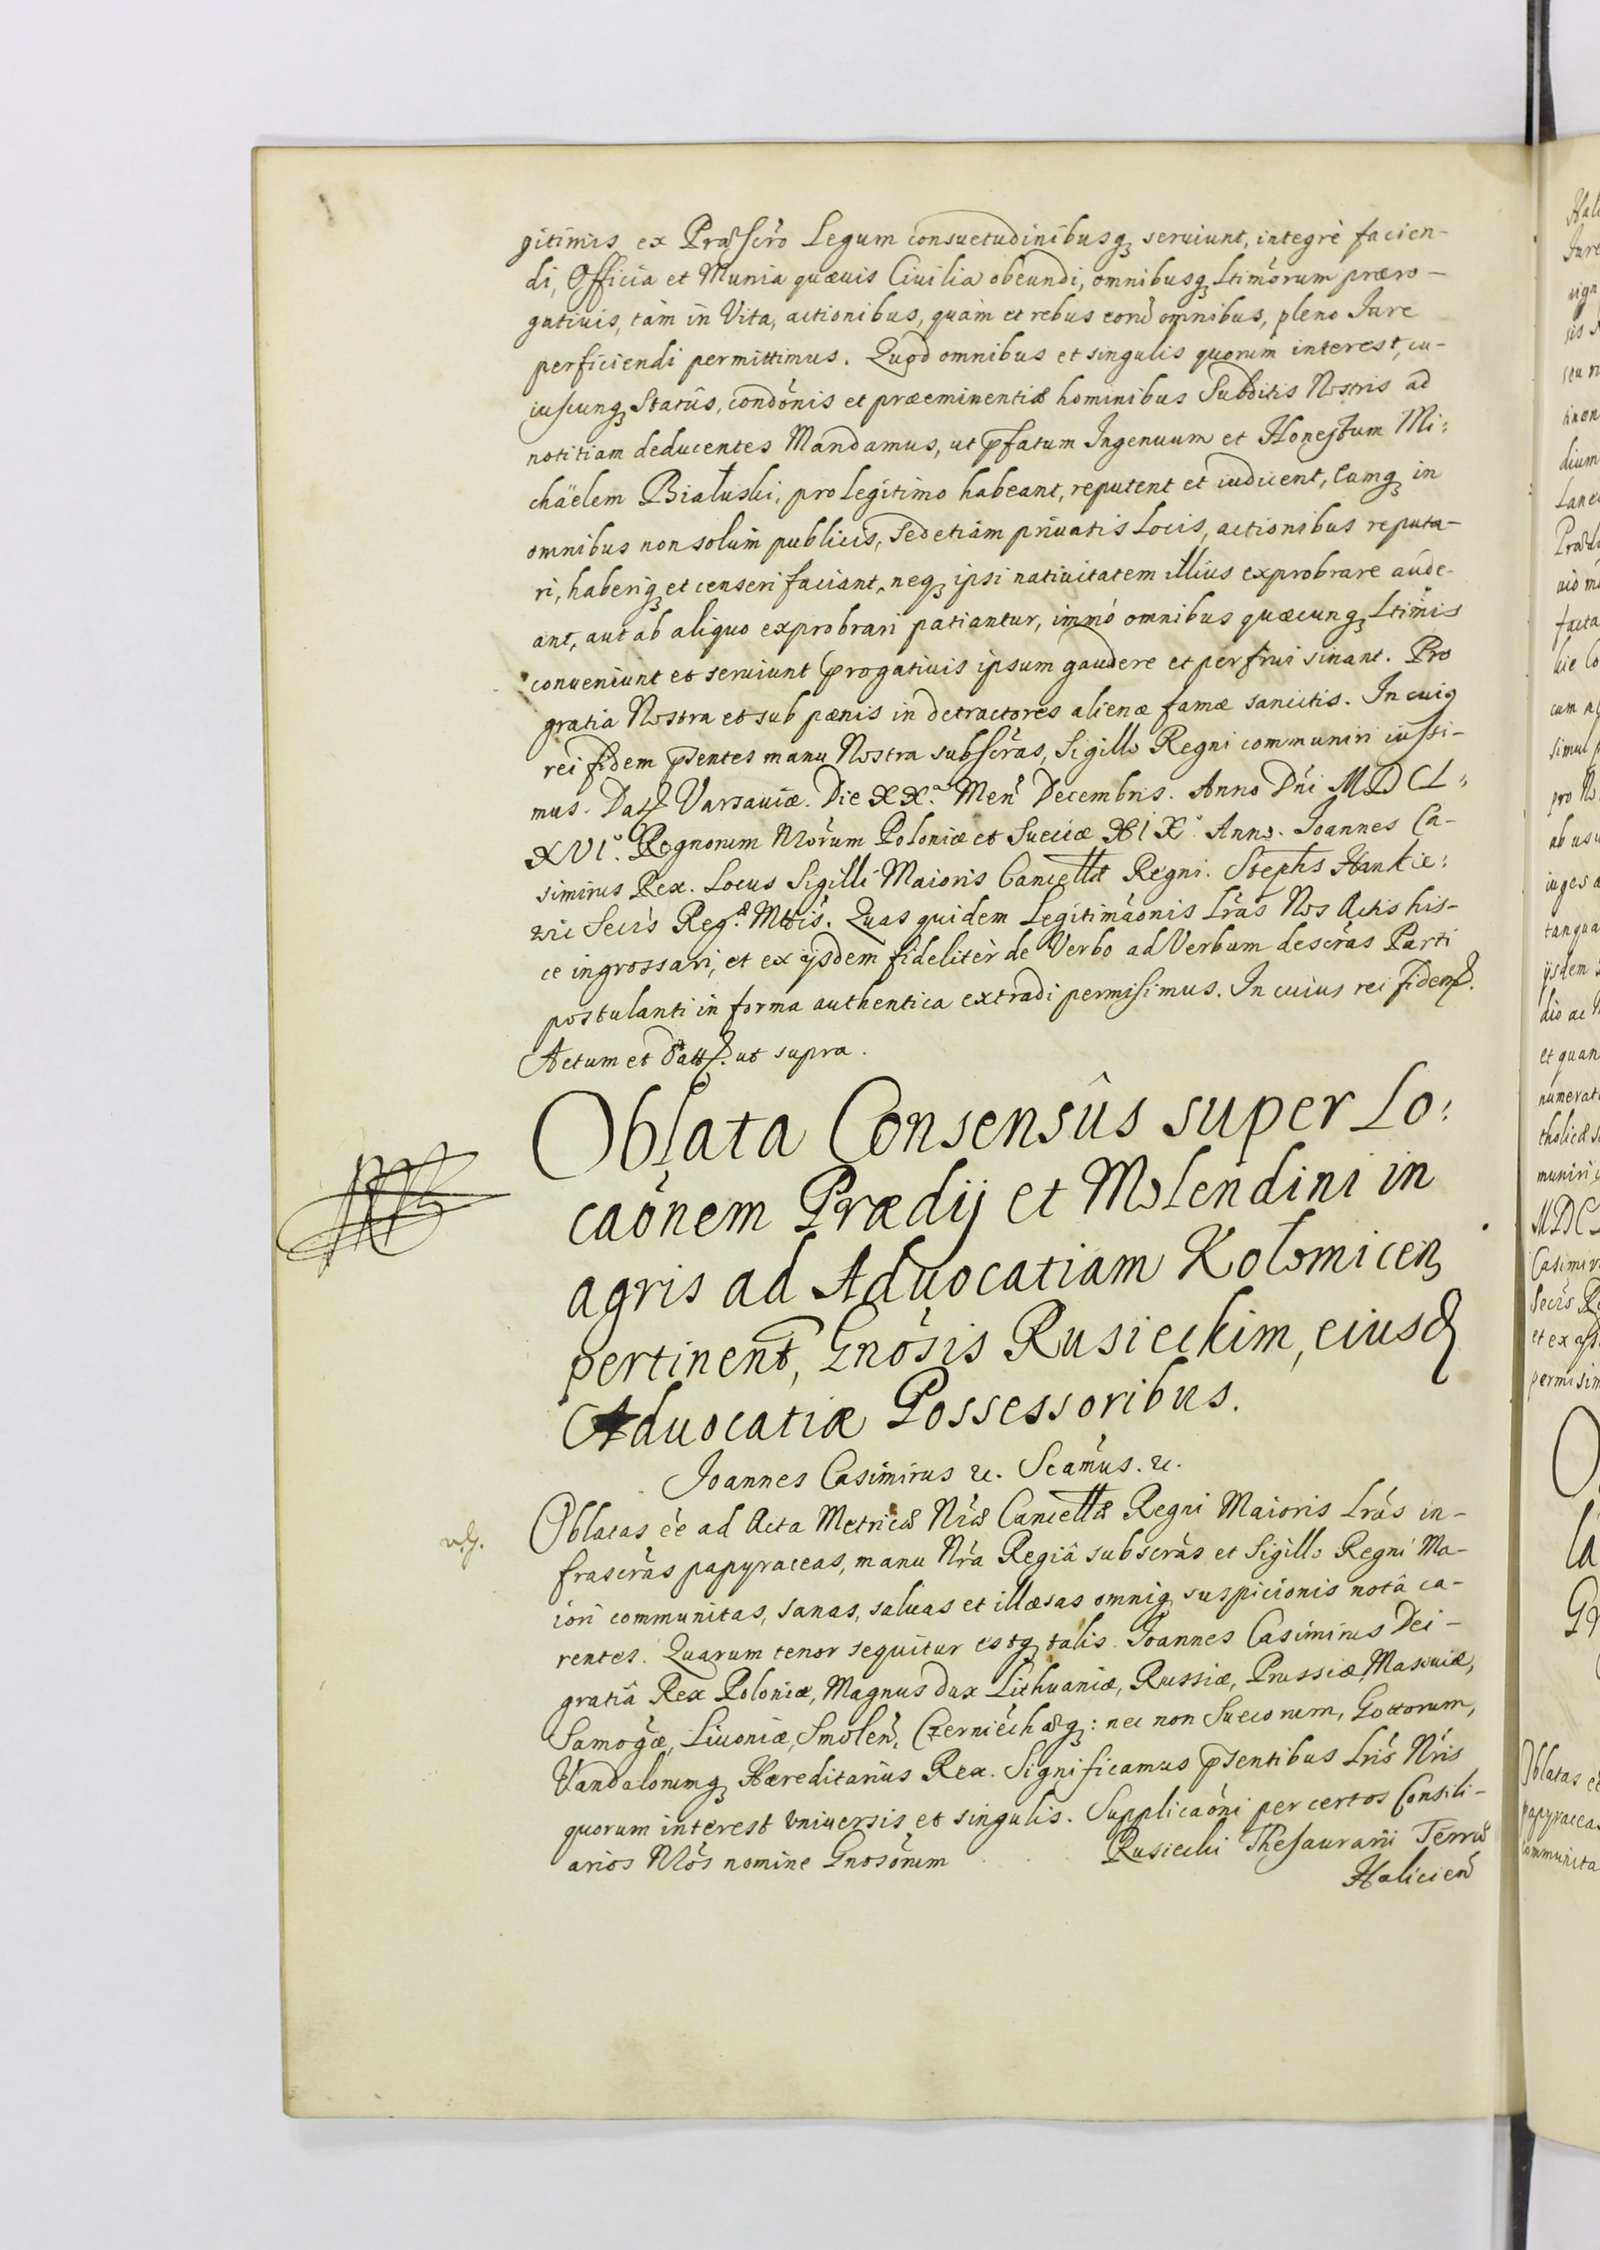 gitimis ex Præscro Legum consuetudinibusq; seruiunt, integrè facien-
di, Officia et Munia quæuis Ciuilia obeundi, omnibusq; Ltimorum præro-
gatiuis, tàm in Vita, actionibus, quàm et rebus eorū omnibus, pleno Iure
perficiendi permittimus. Quod omnibus et singulis quorum interest, cu-
iuscunq; Statûs, condonis et præeminentiæ hominibus Subditis Nostris ad
notitiam deducentes Mandamus, ut pfatum Ingenuum et Honestum Mi:
chäelem Białuski, pro legitimo habeant, reputent et iudicent, Eumq; in
omnibus non solùm publicis, sed etiàm priuatis Locis, actionibus reputa-
ri, haberiq; et censeri faciant, neq; ipsi natiuitatem illius exprobrare aude-
ant, aut ab aliquo exprobrari patiantur, immò omnibus quæcunq; Ltimis
conueniunt et seruiunt progatiuis ipsum gaudere et perfrui sinant. Pro
gratia Nostra et sub pænis in detractores alienæ famæ sancitis. In cuig
rei fidem psentes manu Nostra subscras, Sigillo Regni communiri iussi-
mus. Dat Varsauiæ. Die XX.a Men Decembris. Anno Dni MDCL:
XVI.o Regnorum Nrorum Poloniæ et Sueciæ XIX.o Anno. Joannes Ca-
simirus Rex. Locus Sigilli Maioris Cancellæ Regni. Stephs Hankie:
wic Secrs Reg.æ Mttis. Quas quidem Legitimaonis Lras Nos Actis his-
ce ingrossari, et ex ijsdem fidelitèr de Verbo ad Verbum descras Parti
postulanti in forma authentica extradi permisimus. In cuius rei fidem.
Actum et dat. ut supra.
Oblata Consensûs super Lo:
caonem Prædij et Molendini in
agris ad Aduocatiam Kolomicen
pertinent, Gnosis Rusieckim, eiusd
Aduocatiæ Possessoribus.
Joannes Casimirus &. Scamus. &.
Oblatas ee ad Acta Metricæ Nræ Cancellæ Regni Maioris Lras in-
frascras papyraceas, manu Nra Regiâ subscras et Sigillo Regni Ma-
iori communitas, sanas, saluas et illæsas omniq; suspicionis notâ ca-
rentes. Quarum tenor sequitur estq; talis. Joannes Casimirus Dei-
gratiâ Rex Poloniæ, Magnus dux Lithuaniæ, Russiæ, Prussiæ, Masouiæ,
Samogæ, Liuoniæ, Smolen, Czerniechæq;: nec non Suecorum, Gottorum,
Vandalorumq; Hæreditarius Rex. Significamus psentibus Lris Nris
quorum interest vniuersis et singulis. Supplicaoni per certos Consili-
arios Nros nomine Gnosorum Rusiecki Thesaurarii Terræ
Halicien